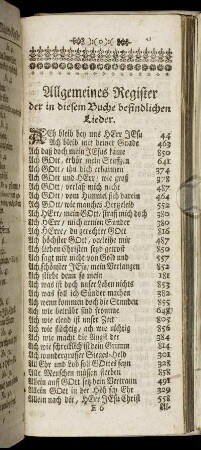 Allgemeines Register
der in diesem Buche befindlichen
Lieder.
Ach bleib bey uns HErr JEsu 44
Ach bleib mit deiner Gnade 463
Ach daß doch mein JEsus käme 850
Ach GOtt, erhör mein Seufzen 641
Ach GOtt, thu dich erbarmen 374
Ach GOtt und HErr, wie groß 978
Ach GOtt, verlaß mich nicht 487
Ach GOtt, vom Himmel sieh darein 464
Ach GOtt, wie manches Herzeleid 552
Ach HErr, mein GOtt, straf mich doch 380
Ach HErr, mich armen Sünder 380
Ach HErre, du gerechter GOtt 816
Ach höchster GOtt, verleihe mir 487
Ach lieben Christen seyd getrost 850
Ach sagt mir nicht von Gold und 557
Ach schönster JEsu, mein Verlangen 852
Ach stirbt denn so mein 181
Ach was ist doch unser Leben nichts 853
Ach was soll ich Sünder machen 382
Ach wenn kommen doch die Stunden 855
Ach wie betrübt sind fromme 648
Ach wie elend ist unser Zeit 805
Ach wie flüchtig, ach wie nichtig 856
Ach wie macht die Angst der 384
Ach wie schrecklich ist dein Grimm 814
Ach wundergrosser Sieges-Held 301
All Ehr und Lob soll GOttes seyn 328
Alle Menschen müssen sterben 858
Allein auf GOtt setz dein Vertraun 491
Allein GOtt in der Höh sey Ehr 329
Allein nach dir, HErr JEsu Christ 558
E 6